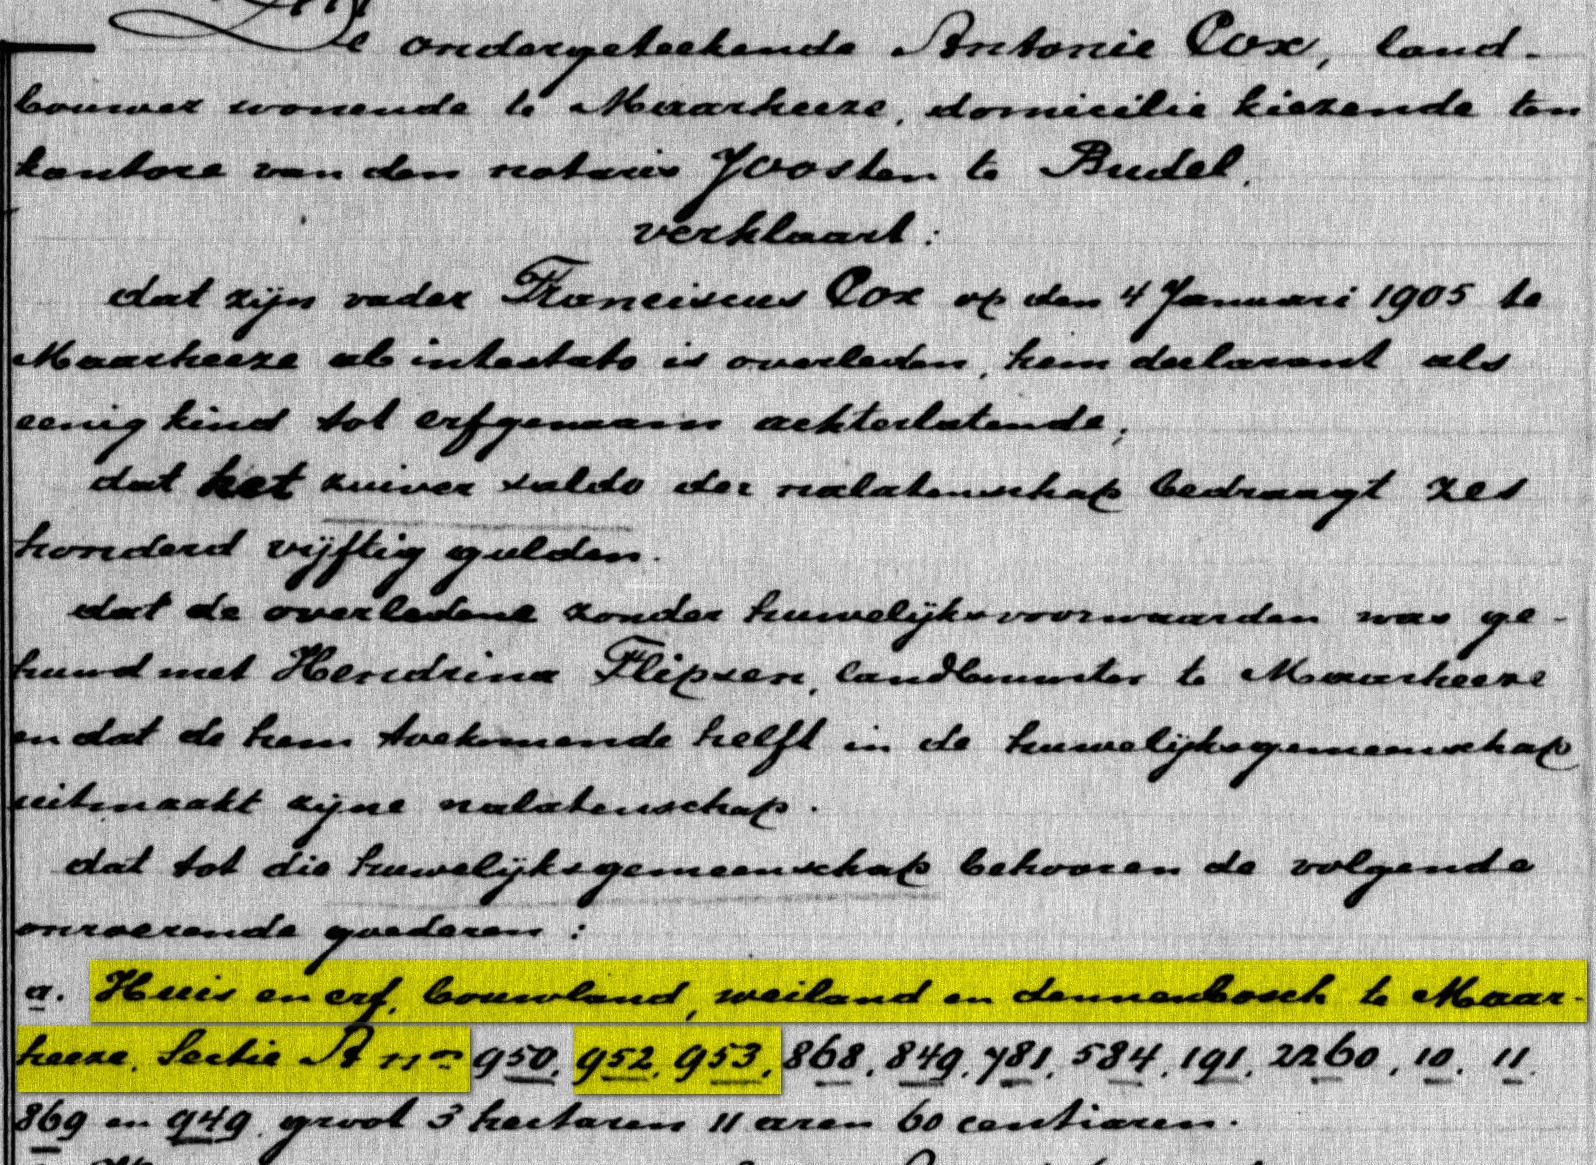 De ondergeteekende Antonie Cox, land-
bouwer wonende te Maarheeze, domicilie kiezende ten
kantore van den notaris Joosten te Budel.
verklaart:
dat zijn vader Franciscus Cox op den 4 Januari 1905 te
Maarheeze ab intestato is overleden, hem declarant als
eenig kind tot erfgenaam achterlatende;
dat het zuiver saldo der nalatenschap bedraagt zes
honderd vijftig gulden.
dat de overledene zonder huwelijksvoorwaarden was ge-
huwd met Hendrina Flipsen, landbouwster te Maarheeze
en dat de hem toekomende helft in de huwelijksgemeenschap
uitmaakt zijne nalatenschap.
dat tot die huwelijksgemeenschap behooren de volgende
onroerende goederen:
a. Huis en erf, bouwland, weiland en dennenbosch te Maar-
heeze, Sectie A nos 950, 952, 953, 868, 849, 781, 584, 191, 2260, 10, 11,
869 en 949, groot 3 hectaren 11 aren 60 centiaren.